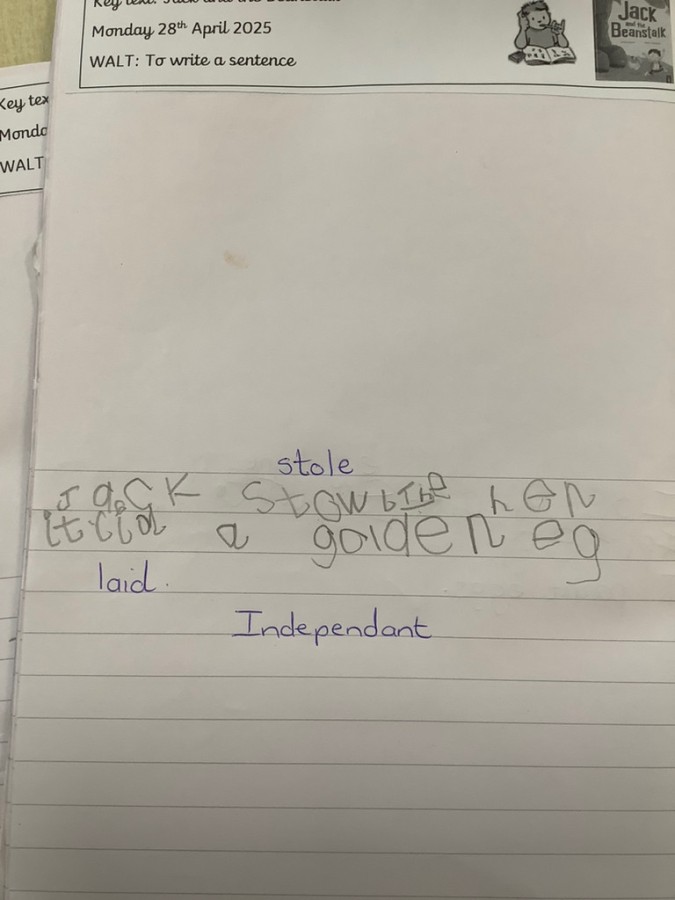 Monday 28th April 2025
WALT: To write a sentence
Jack and the Beanstalk
Key tex
Monda
WALT
stole
Jack Stow the hen
it lid a golden eg
laid.
Independant